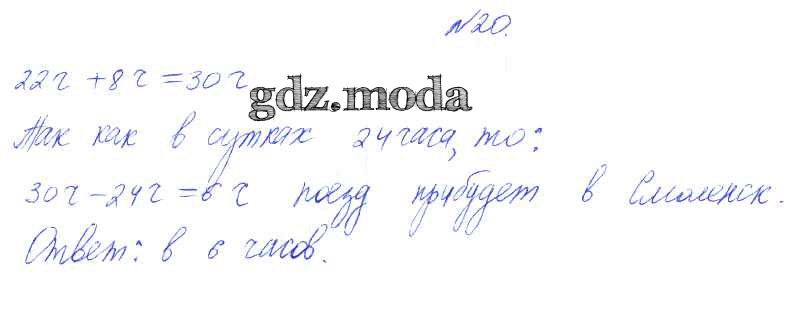 №20.
22ч + 8ч = 30ч
gdz.moda
Так как в сутках 24 часа, то:
30ч - 24ч = 6ч поезд прибудет в Смоленск.
Ответ: в 6 часов.